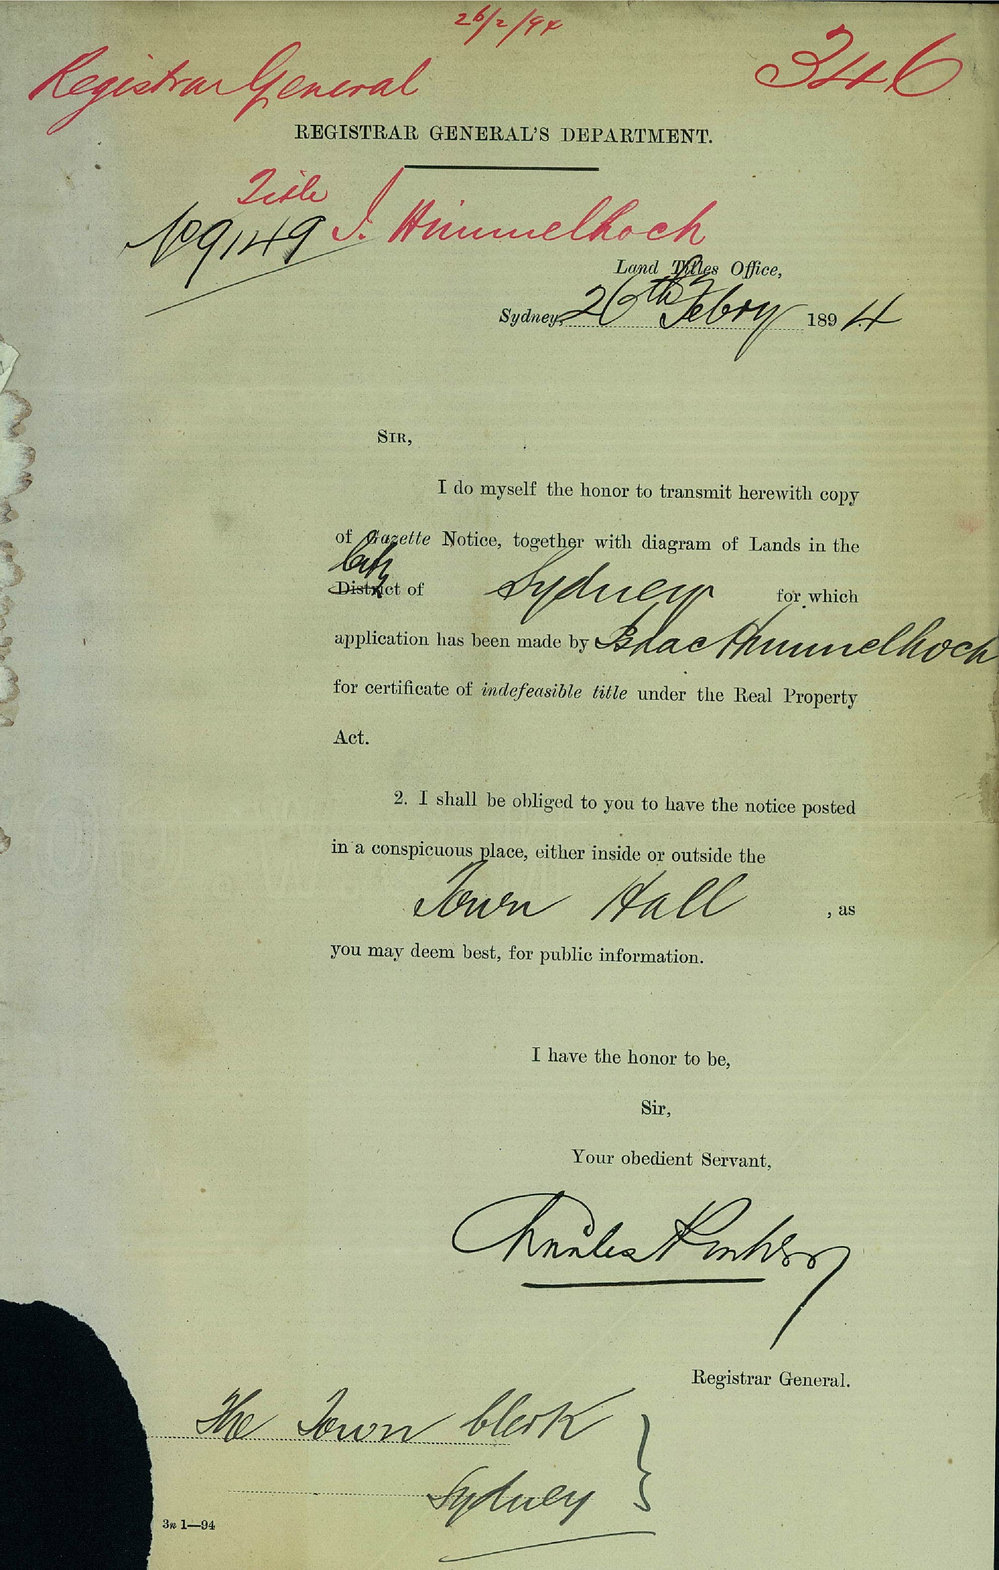 26/2/94
Registrar General
346
REGISTRAR GENERAL'S DEPARTMENT.
Title
No 9149 I. Himmelhoch
Land Titles Office,
Sydney, 26th Febry 1894
SIR,
I do myself the honor to transmit herewith copy
of Gazette Notice, together with diagram of Lands in the
City
District of Sydney for which
application has been made by Isaac Himmelhoch
for certificate of indefeasible title under the Real Property
Act.
2. I shall be obliged to you to have the notice posted
in a conspicuous place, either inside or outside the
Town Hall , as
you may deem best, for public information.
I have the honor to be,
Sir,
Your obedient Servant,
Charles
Registrar General.
The Town Clerk
Sydney
3n 1—94